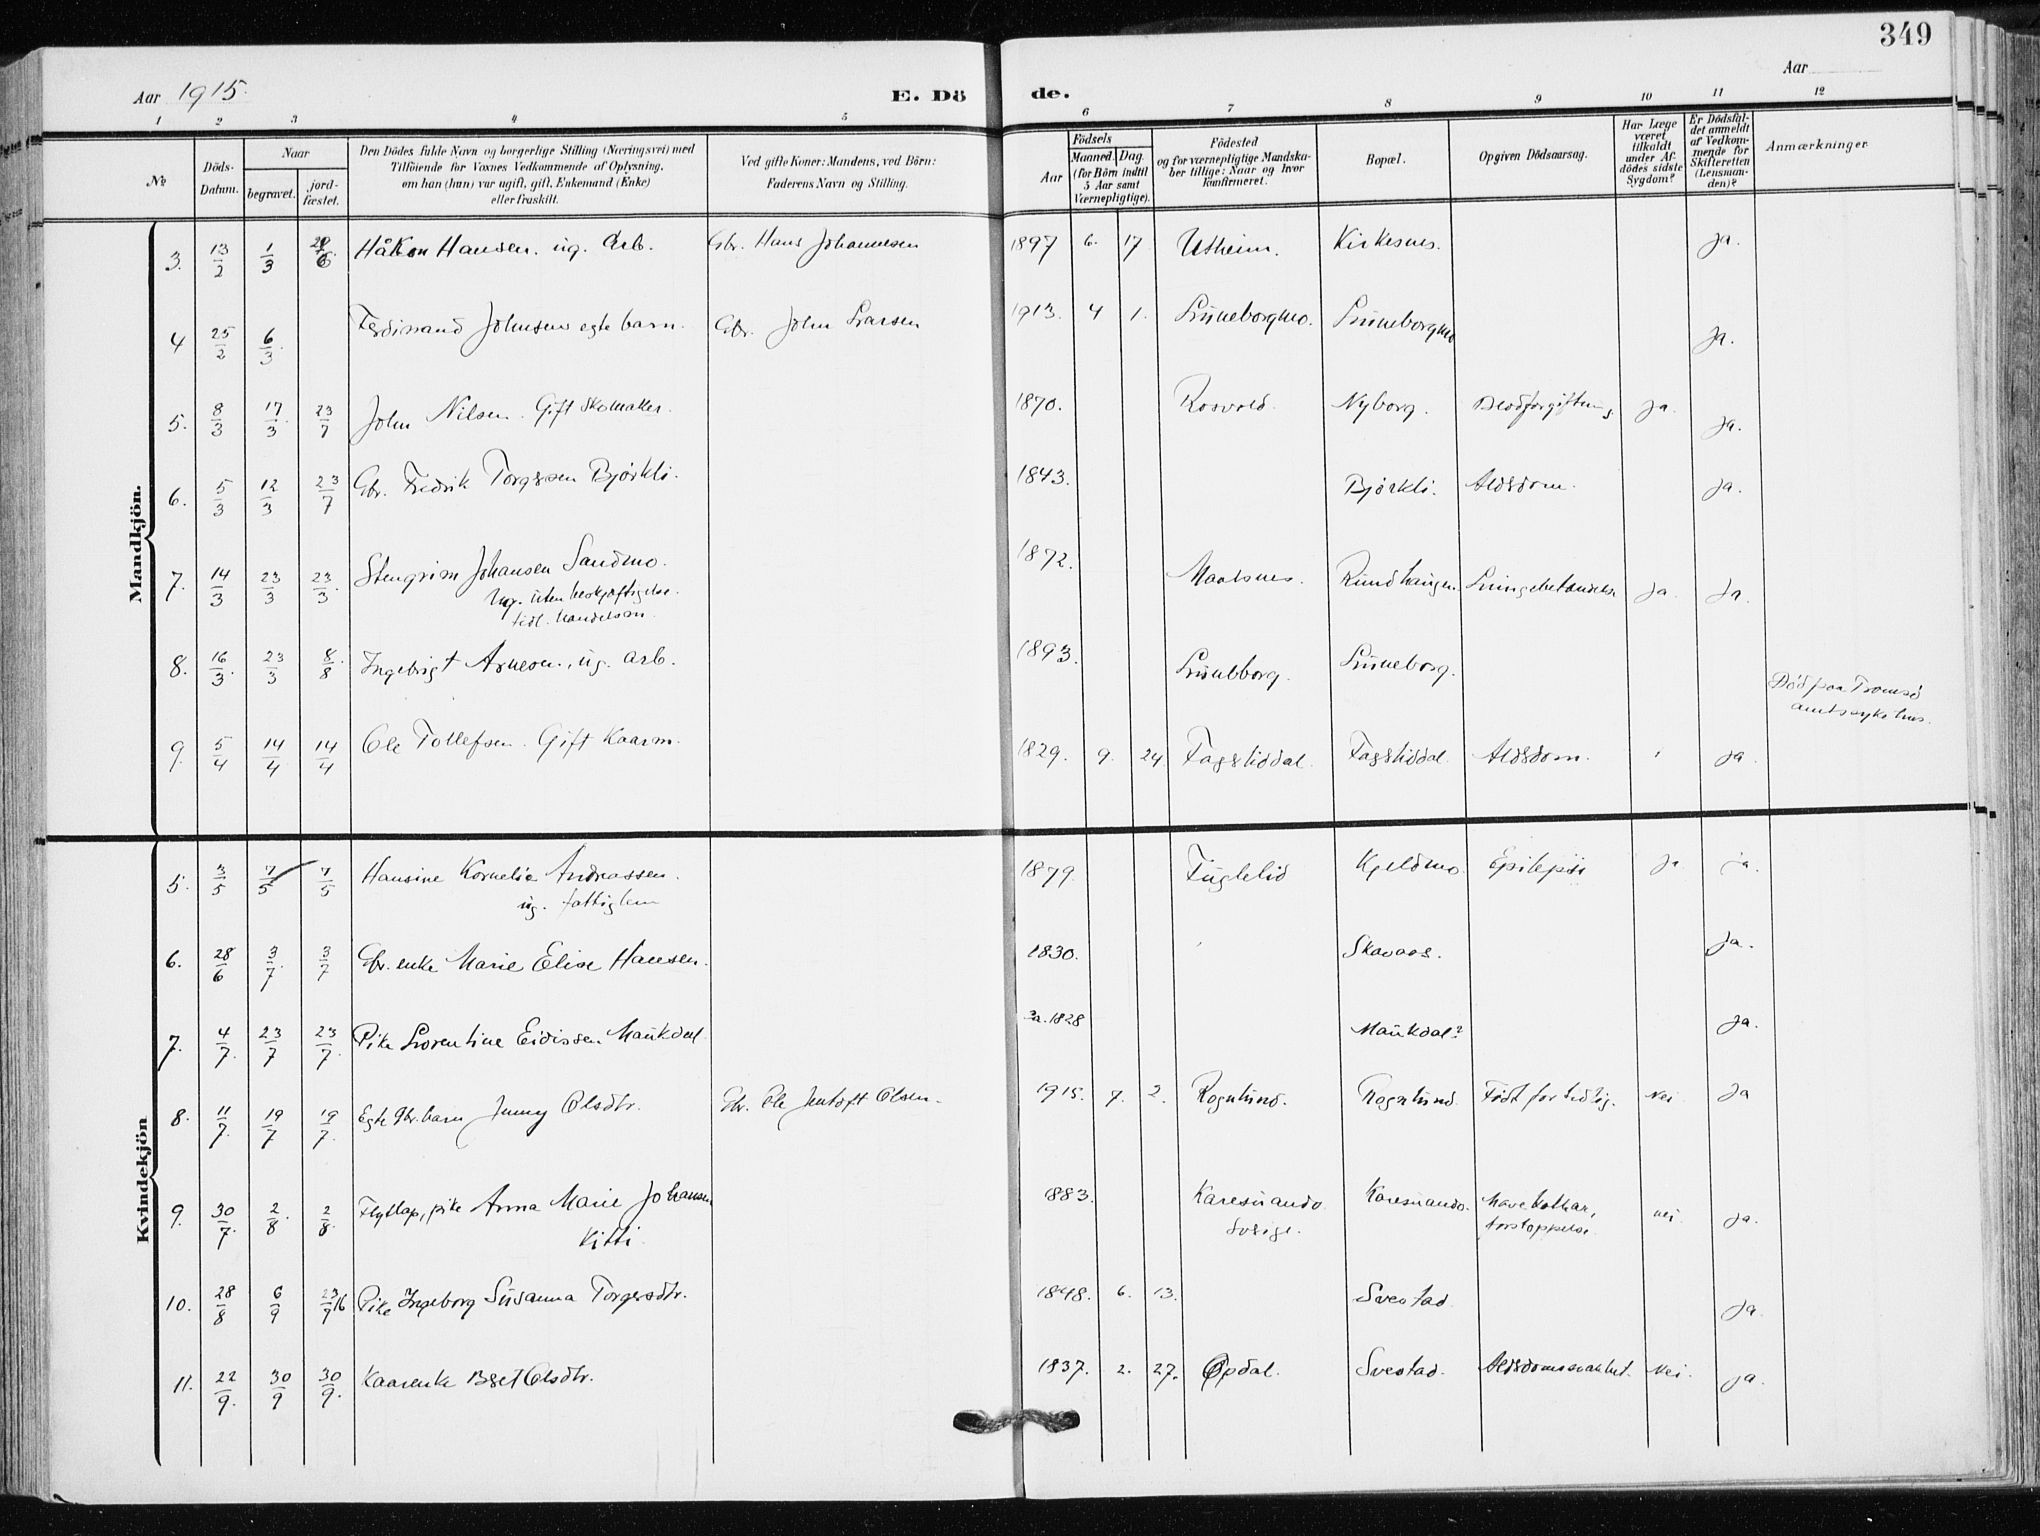 349
Aar 1915.
E. Dö de.
Aar
1 2 3 4 5 6 7 8 9 10 11 12
№
Döds-Datum.
Naar
begravet.
jord-fæstet.
Den Dödes fulde Navn og borgerlige Stilling (Næringsvei) med
Tilföiende for Voxnes Vedkommende af Oplysning,
om han (hun) var ugift, gift, Enkemand (Enke)
eller fraskilt.
Ved gifte Koner: Mandens, ved Börn:
Faderens Navn og Stilling.
Aar
Födsels
Maaned. Dag.
(for Börn indtil
5 Aar samt
Værnepligtige).
Födested
og for værnepligtige Mandska-
ber tillige: Naar og hvor
konfirmeret.
Bopæl.
Opgiven Dödsaarsag.
Har Læge
været
tilkaldt
under Af-
dödes sidste
Sygdom?
Er Dödsfal-
det anmeldt
af Vedkom-
mende for
Skifteretten
(Lensman-
den)?
Anmærkninger
Mandkjön.
3. 13/2 1/3 Håkon Hansen. ug. Arb. Gbr. Hans Johannesen 1897 6. 17 Utheim. Kirkesnes. Ja.
4 25/2 6/3. Ferdinand Johnsen egte barn. Gbr. John Larsen 1913. 4 1. Luneborgmo. Luneborgmo Ja.
5. 8/3 17/3 23/7 John Nilsen. Gift Skomaker. 1870. Rosvold. Nyborg. Blodforgiftning Ja. Ja.
6. 5/3 12/3 23/7 Gbr. Fredrik Torgersen Bjørkli. 1843. Bjørkli. Aldsdom. Ja.
7. 14/3 23/3 23/3. Stengrim Johansen Sandmo. 1872. Maalsnes. Rundhaugen. Lungebetændelse Ja. Ja.
Ug. uten beskjæftigelse.
tidl. handelsm.
8. 16/3. 23/3 8/8 Ingebrigt Arnesen, ug. arb. 1893. Luneborg. Luneborg.
Död paa Tromsö
amtssykehus.
9. 5/4 14/4 14/4 Ole Tollefsen. Gift Kaarm. 1829. 9. 24 Fagerliddal. Fagerliddal. Aldsdom. Ja
Kvindekjön
5. 3/5 7/5 7/5 Hansine Kornelia Andreassen. 1879. Fuglelid Kjeldmo. Epilepsi Ja ja.
ug. fattiglem
6. 28/6 3/7. 3/7 Gbr. enke Marie Elise Hansen. 1830. Skavaas. Ja.
7. 4/7. 23/7 23/7. Pike Lorentine Eidissen Maukdal. 1828 Maukdal? Ja.
8. 11/7. 19/7 19/7. Egte Gbr. barn Jenny Olsdtr. Gbr. Ole Jentoft Olsen. 1915. 7. 2. Rognlund. Rognlund. Född for tidlig. Nei Ja
9. 30/7. 2/8. 2/8. Flytlap, pike Anna Marie Johansen 1883. Karesuando Karesuando. Mavekatharr, nei. Ja.
Kitti. Sverige. forstoppelse
10. 28/8 6/9 23/9 16 Pike Ingeborg Susanna Torgersdtr. 1848. 6. 13. Svestad Ja.
11. 22/9. 30/9 30/9. Kaarenke Beret Olsdtr. 1837. 2. 27. Opdal. Svestad. Aldsdomssvakhet. Nei. Ja.